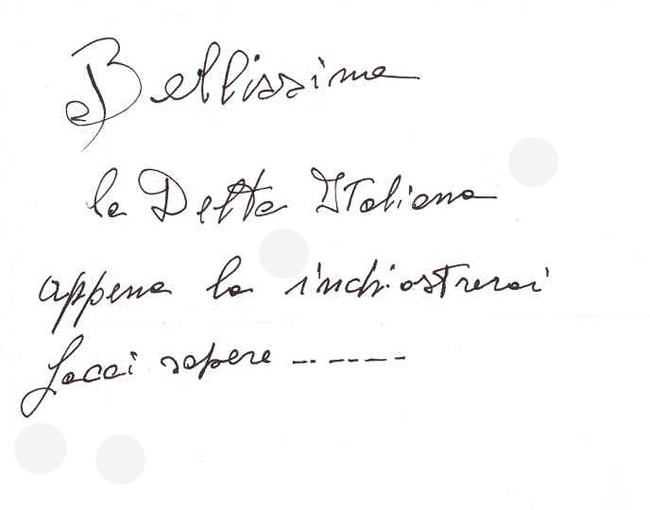 Bellissima
la Detta Italiana
appena la inchiostrerai
facci sapere ------